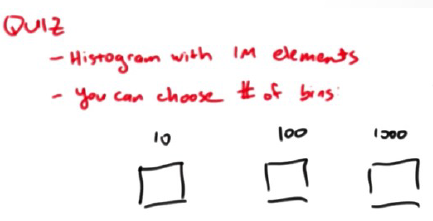 QUIZ
- Histogram with 1M elements
- You can choose # of bins:
10 100 1000